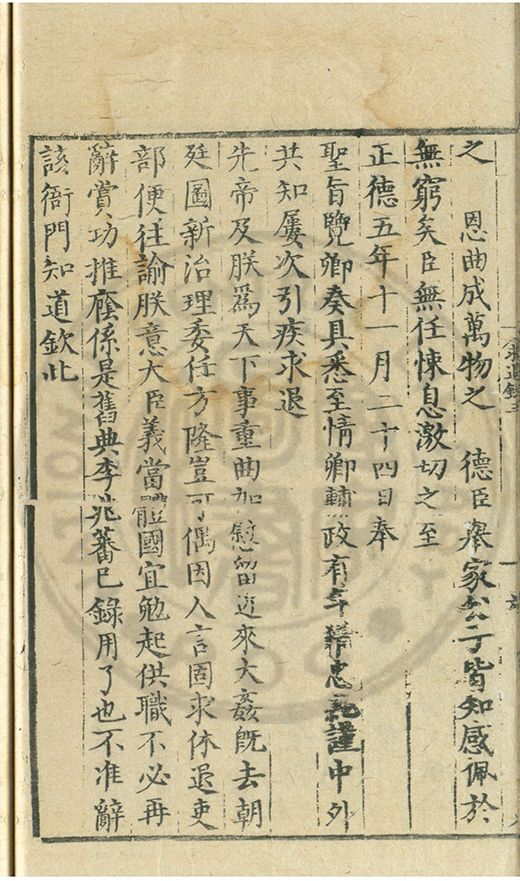 之 恩曲成萬物之 德臣舉家父子皆知感佩於
無窮矣臣無任悚息激切之至
正德五年十一月二十四日奉
聖旨覽卿奏具悉至情卿輔政有年忠謹中外
共知屢次引疾求退
先帝及朕爲天下事重曲加慰留近來大姦旣去朝
廷圖新治理委任方隆豈可偶因人言固求休退吏
部便往諭朕意大臣義當體國宜勉起供職不必再
辭賞功推廕係是舊典李兆蕃已錄用了也不准辭
該衙門知道欽此